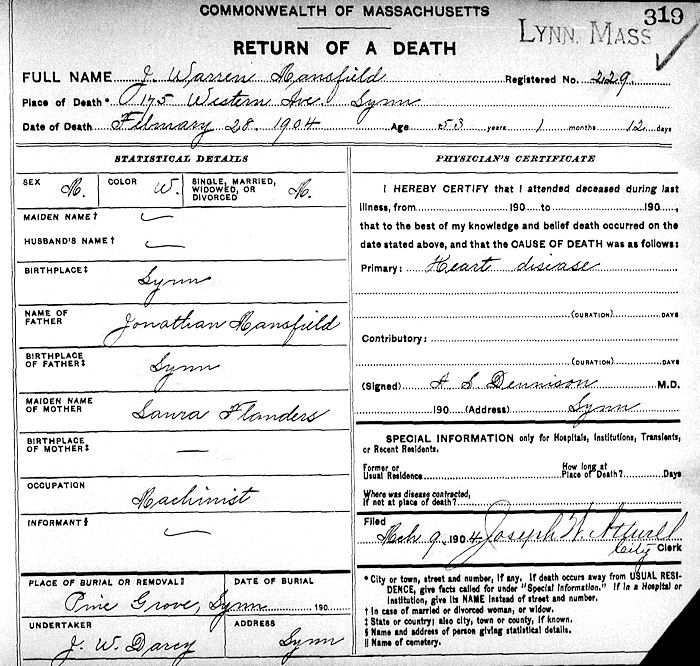 COMMONWEALTH OF MASSACHUSETTS
319
LYNN, MASS
RETURN OF A DEATH
FULL NAME J. Warren Mansfield Registered No. 229
Place of Death* 175 Western Ave. Lynn
Date of Death February 28. 1904 Age 53 years 1 months 12 days
STATISTICAL DETAILS
SEX M. COLOR W. SINGLE, MARRIED, WIDOWED, OR DIVORCED M.
MAIDEN NAME†
HUSBAND'S NAME†
BIRTHPLACE‡ Lynn
NAME OF FATHER Jonathan Mansfield
BIRTHPLACE OF FATHER‡ Lynn
MAIDEN NAME OF MOTHER Laura Flanders
BIRTHPLACE OF MOTHER‡ —
OCCUPATION Machinist
INFORMANT§
PLACE OF BURIAL OR REMOVAL‖ DATE OF BURIAL
Pine Grove, Lynn 190
UNDERTAKER ADDRESS
J. W. Darcy Lynn
PHYSICIAN'S CERTIFICATE
I HEREBY CERTIFY that I attended deceased during last
illness, from 190 to 190 ,
that to the best of my knowledge and belief death occurred on
the date stated above, and that the CAUSE OF DEATH was as follows:
Primary: Heart disease
(DURATION) DAYS
Contributory:
(DURATION) DAYS
(Signed) A S. Dennison M.D.
190 (Address) Lynn
SPECIAL INFORMATION only for Hospitals, Institutions, Transients,
or Recent Residents.
Former or Usual Residence How long at Place of Death? Days
Where was disease contracted,
If not at place of death?
Filed
Mch 9, 1904 Joseph W. Attwill
City Clerk
* City or town, street and number, if any. If death occurs away from USUAL RESI-
DENCE, give facts called for under "Special Information." If in a Hospital or
Institution, give its NAME instead of street and number.
† In case of married or divorced woman, or widow.
‡ State or country; also city, town or county, if known.
§ Name and address of person giving statistical details.
‖ Name of cemetery.